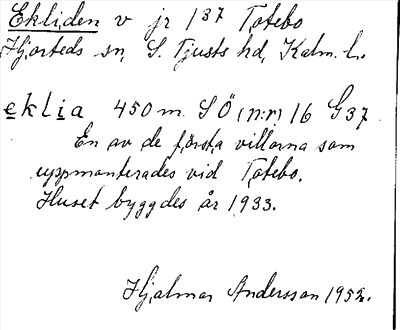 Ekliden v jr 137 Totebo
Hjorteds sn, S. Tjusts hd, Kalm. l.
eklia 450 m. SÖ (n:r) 16 G37
En av de första villorna som
uppmonterades vid Totebo.
Huset byggdes år 1933.
Hjalmar Andersson 1952.